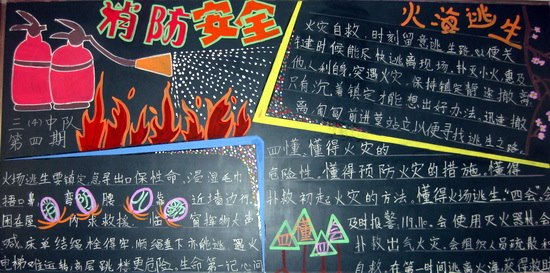 消防安全
三(4)中队
第四期
火海逃生
火灾自救,时刻留意逃生路,以便关
键时候能尽快逃离现场,扑灭小火,惠及
他人利自身,突遇火灾,保持镇定辨逃撤离
只有沉着镇定才能想出好办法,迅速撤
离,匍匐前进莫站立以便寻找逃生之路
火场逃生要镇定,急寻出口保性命,湿湿毛巾
捂口鼻弯腰 靠近墙边行
困在屋内求救援,临窗挥物大声
喊,床单结绳拴得牢,顺绳垂下亦能逃,遇火
电梯难运转,高层跳楼更危险,生命第一记心间
四懂,懂得火灾的
危险性,懂得预防火灾的措施,懂得
扑救初起火灾的方法,懂得火场逃生,"四会,会
及时报警119,会使用灭火器,会
扑救出气火灾,会组织人员疏散
自救,在第一时间逃离火海获得
四懂四会